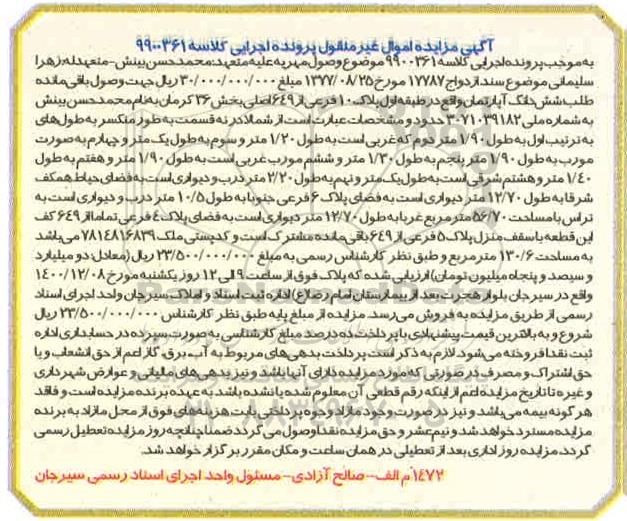 آگهی مزایده اموال غیر منقول پرونده اجرایی کلاسه ۹۹۰۰۳۶۱
به موجب پرونده اجرایی کلاسه ۹۹۰۰۳۶۱ موضوع وصول مهریه علیه متعهد: محمدحسن بینش- متعهدله: زهرا
سلیمانی موضوع سند ازدواج ۱۷۷۸۷ مورخ ۱۳۷۷/۰۸/۲۵ مبلغ ۳۰/۰۰۰/۰۰۰/۰۰۰ ریال جهت وصول باقی مانده
طلب شش دانگ آپارتمان واقع در طبقه اول پلاک ۱۰ فرعی از ۶۴۹ اصلی بخش ۳۶ کرمان به نام محمدحسن بینش
به شماره ملی ۳۰۷۱۰۳۹۱۸۲ حدود و مشخصات عبارت است از شمالا در نه قسمت به طور منکسر به طول های
به ترتیب اول به طول ۱/۹۰ متر دوم که غربی است به طول ۱/۲۰ متر و سوم به طول یک متر و چهارم به صورت
مورب به طول ۱/۹۰ متر پنجم به طول ۱/۳۰ متر و ششم مورب غربی است به طول ۱/۹۰ متر و هفتم به طول
۱/۴۰ متر و هشتم شرقی است به طول یک متر و نهم به طول ۲/۲۰ متر درب و دیواری است به فضای حیاط همکف
شرقا به طول ۱۲/۷۰ متر دیواری است به فضای پلاک ۶ فرعی جنوبا به طول ۱۰/۵ متر درب و دیواری است به
تراس با مساحت ۵۶/۷۰ متر مربع غربا به طول ۱۲/۷۰ متر دیواری است به فضای پلاک ۴ فرعی تماما از ۶۴۹ کف
این قطعه با سقف منزل پلاک ۵ فرعی از ۶۴۹ باقی مانده مشترک است و کدپستی ملک ۷۸۱۴۸۱۶۸۳۹ می باشد
به مساحت ۱۳۰/۶ متر مربع و طبق نظر کارشناس رسمی به مبلغ ۲۳/۵۰۰/۰۰۰/۰۰۰ ریال (معادل: دو میلیارد
و سیصد و پنجاه میلیون تومان) ارزیابی شده که پلاک فوق از ساعت ۹ الی ۱۲ روز یکشنبه مورخ ۱۴۰۰/۱۲/۰۸
واقع در سیرجان بلوار هجرت بعد از بیمارستان امام رضا(ع) اداره ثبت اسناد و املاک سیرجان واحد اجرای اسناد
رسمی از طریق مزایده به فروش می رسد. مزایده از مبلغ پایه طبق نظر کارشناس ۲۳/۵۰۰/۰۰۰/۰۰۰ ریال
شروع و به بالاترین قیمت پیشنهادی با پرداخت ده درصد مبلغ کارشناسی به صورت سپرده در حسابداری اداره
ثبت نقدا فروخته می شود. لازم به ذکر است پرداخت بدهی های مربوط به آب، برق، گاز اعم از حق انشعاب و یا
حق اشتراک و مصرف در صورتی که مورد مزایده دارای آنها باشد و نیز بدهی های مالیاتی و عوارض شهرداری
و غیره تا تاریخ مزایده اعم از اینکه رقم قطعی آن معلوم شده یا نشده باشد به عهده برنده مزایده است و فاقد
هر گونه بیمه می باشد و نیز در صورت وجود مازاد وجوه پرداختی بابت هزینه های فوق از محل مازاد به برنده
مزایده مسترد خواهد شد و نیم عشر و حق مزایده نقدا وصول می گردد ضمنا چنانچه روز مزایده تعطیل رسمی
گردد، مزایده روز اداری بعد از تعطیلی در همان ساعت و مکان مقرر برگزار خواهد شد.
۱۴۷۲ م الف-- صالح آزادی- مسئول واحد اجرای اسناد رسمی سیرجان